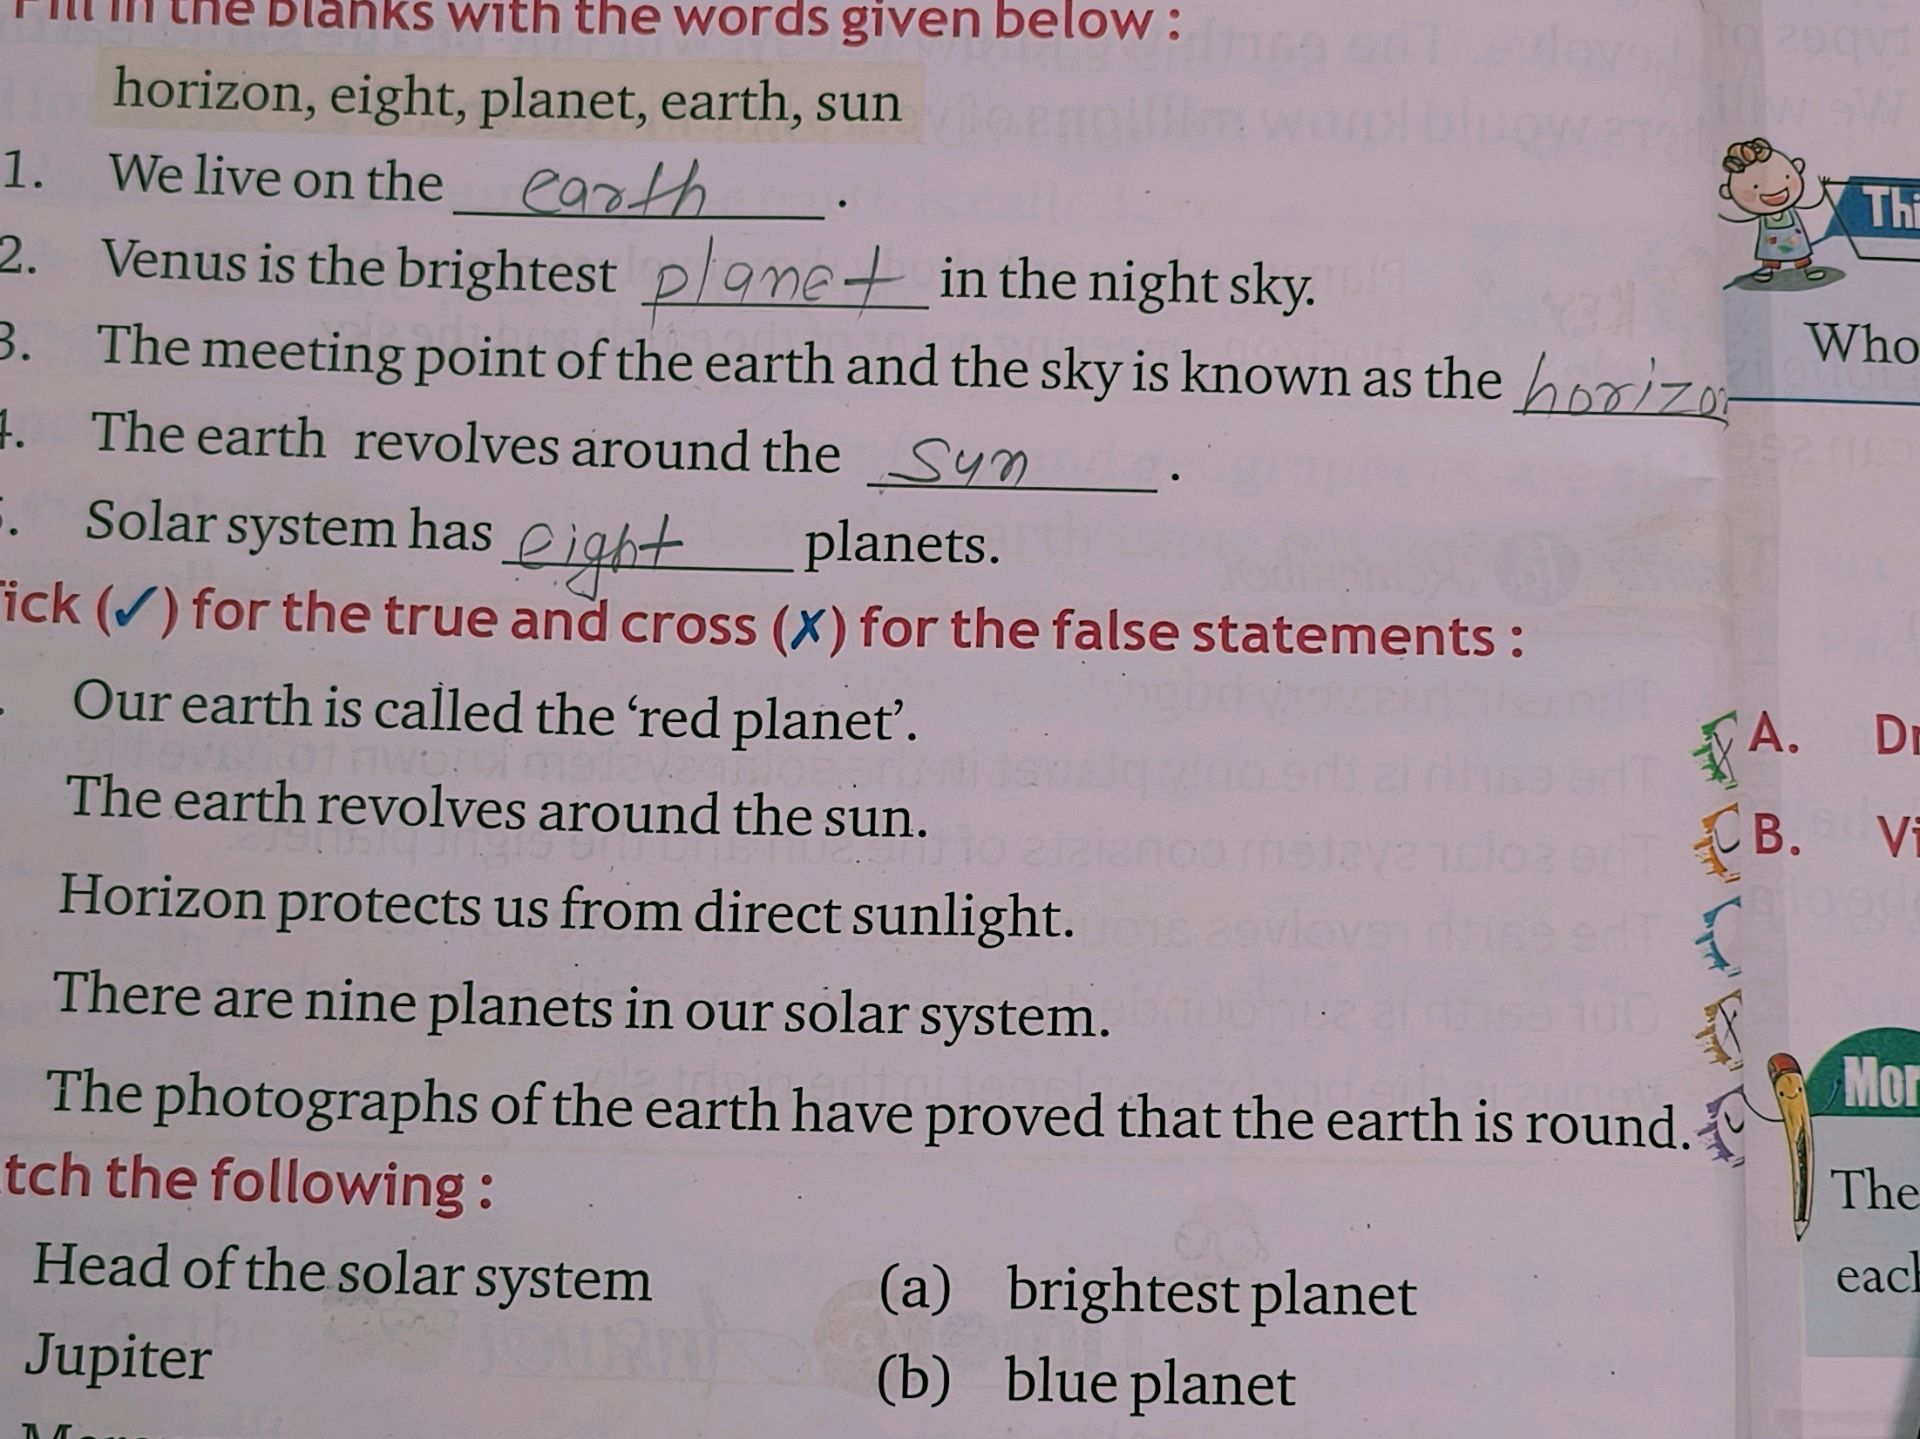 Fill in the blanks with the words given below :
horizon, eight, planet, earth, sun
1. We live on the earth .
2. Venus is the brightest planet in the night sky.
3. The meeting point of the earth and the sky is known as the horizon
4. The earth revolves around the sun .
5. Solar system has eight planets.
ick (✓) for the true and cross (✗) for the false statements :
Our earth is called the ‘red planet’. X
The earth revolves around the sun.
Horizon protects us from direct sunlight.
There are nine planets in our solar system. X
The photographs of the earth have proved that the earth is round.
tch the following :
Head of the solar system (a) brightest planet
Jupiter (b) blue planet
Thi
Who
A. Dr
B. Vi
Mor
The
each